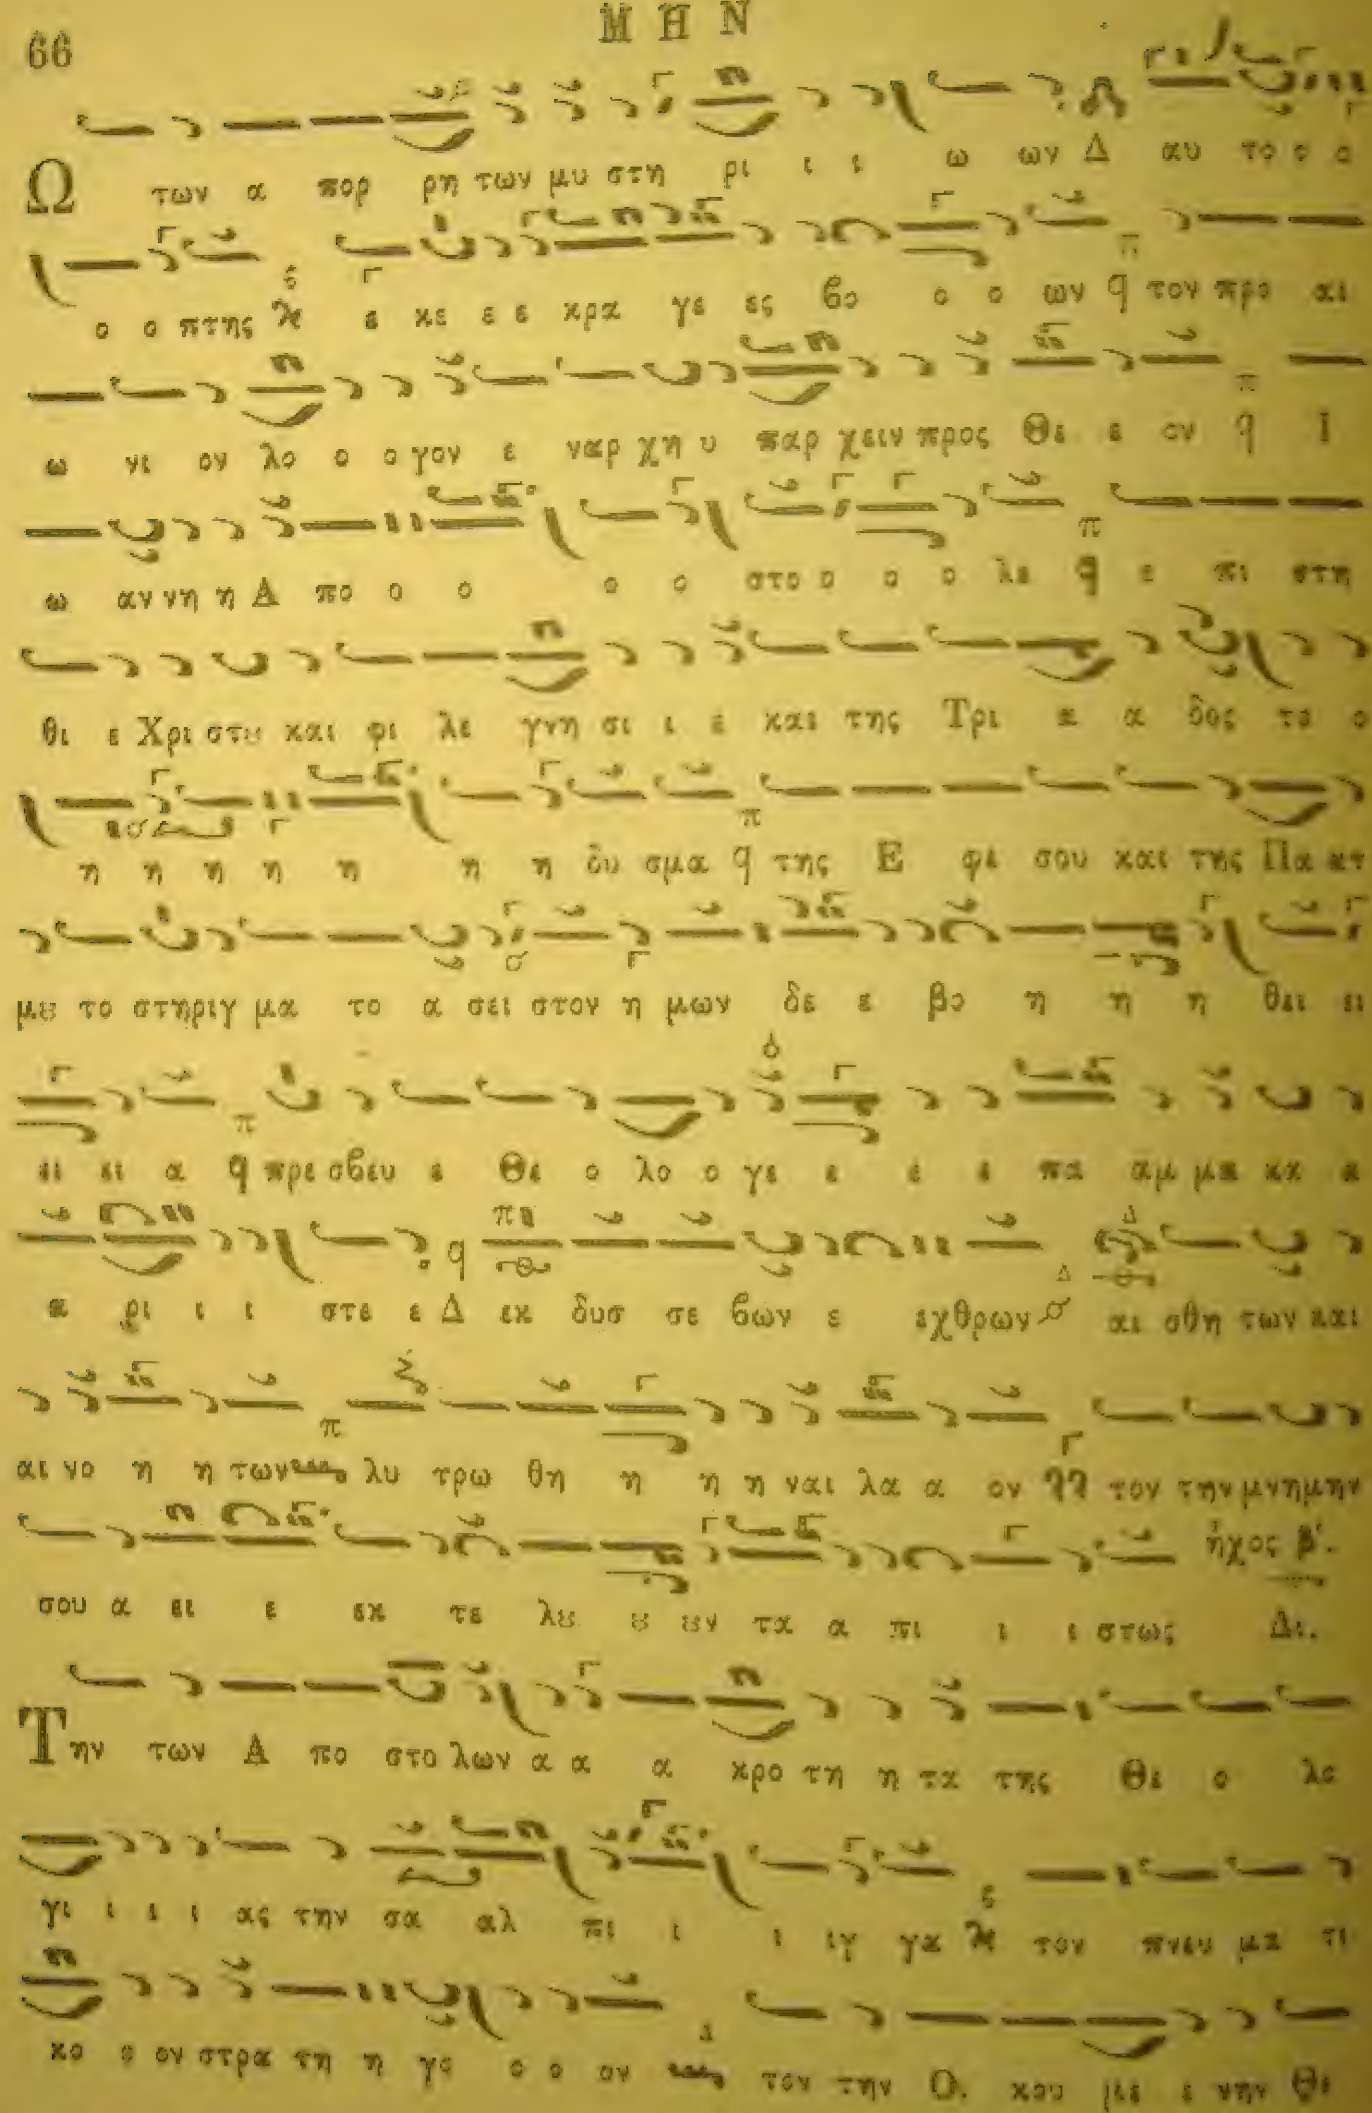 66 ΜΗΝ
Ω των α πορ ρη των μυ στη ρι ι ι ω ων Δ αυ το ο ο
ο ο πτης ε κε ε ε κρα γε ες βο ο ο ων q τον προ αι
ω νι ον λο ο ο γον ε ναρ χη υ παρ χειν προς Θε ε ον q Ι
ω αν νη η Δ πο ο ο ο ο στο ο ο ο λε q ε πι στη
θι ε Χρι στȣ και φι λε γνη σι ι ε και της Τρι α α δος το ο
η η η η η η η δυ σμα q της Ε φε σου και της Πα ατ
μȣ το στηριγ μα το α σει στον η μων δε ε βο η η η θει ει
ει ει α q πρε σβευ ε Θε ο λο ο γε ε ε ε πα αμ μα κα α
α ρι ι ι στε ε Δ εκ δυσ σε βων ε εχθρων αι σθη των και
αι νο η η των λυ τρω θη η η η ναι λα α ον τον την μνημην
σου α ει ε εκ τε λȣ ȣ ȣν τα α πι ι ι στως Δι.
ἦχος β'.
Την των Α πο στο λων α α α κρο τη η τα της Θε ο λο
γι ι ι ι ας την σα αλ πι ι ι ιγ γα τον πνευ μα τι
κο ο ον στρα τη η γο ο ο ον τον την Ο. κου με ε νην Θε